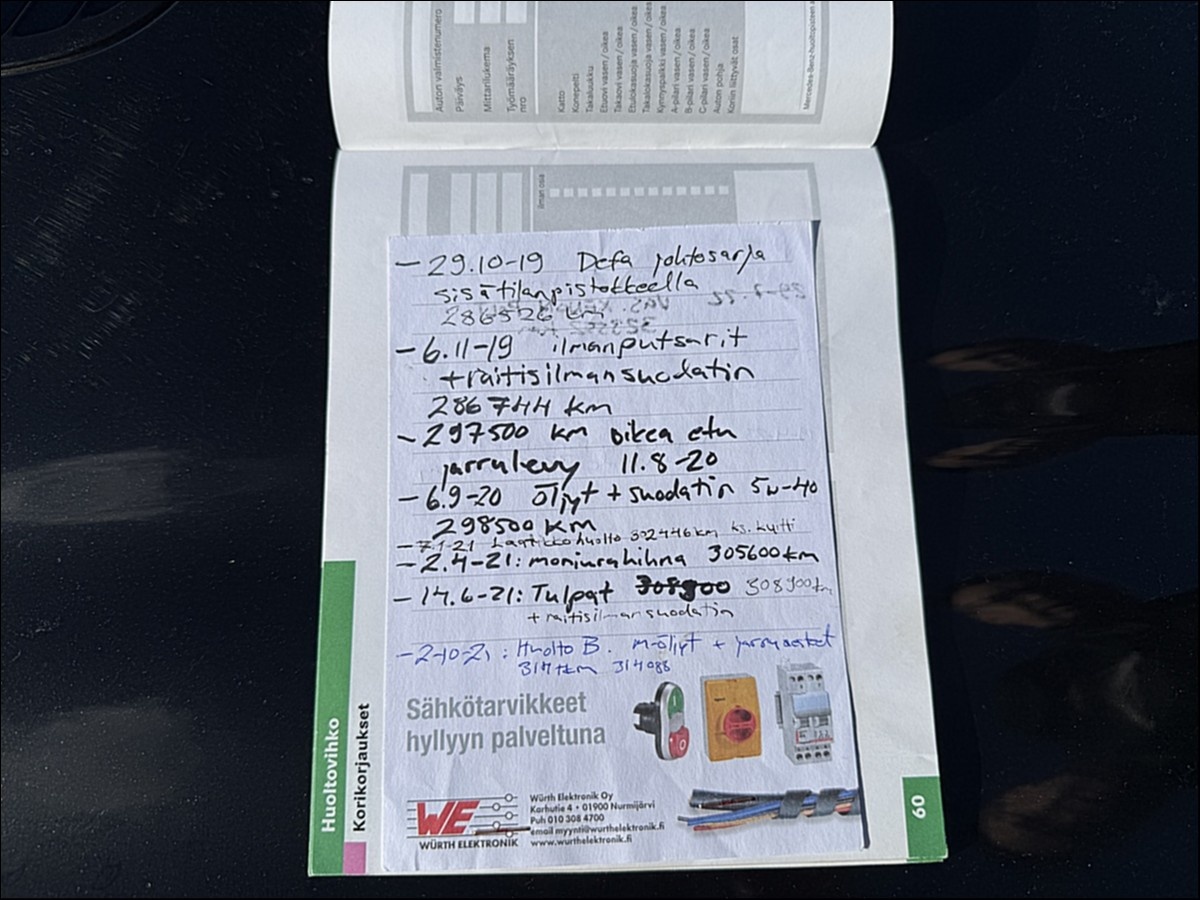 Auton valmistenumero
Päiväys
Mittarilukema
Työmääräyksen
nro
Katto
Konepelti
Takaluukku
Etuovi vasen / oikea
Takaovi vasen / oikea
Etulokasuoja vasen / oikea
Takalokasuoja vasen / oikea
Kynnyspalkki vasen / oikea
A-pilari vasen / oikea
B-pilari vasen / oikea
C-pilari vasen / oikea
Auton pohja
Koriin liittyvät osat
Mercedes-Benz-huoltopisteen
ilman osia
- 29.10-19 Defa johtosarja
sisätilanpistokkeella
286526 km
- 6.11-19 ilmanputsarit
+ raitisilmansuodatin
286744 km
- 297500 km oikea etu
jarrulevy 11.8-20
- 6.9-20 öljyt + suodatin 5w-40
298500 km
- 7.1-21 Laatikko huolto 302446 km ks. kuitti
- 2.4-21: moniurahihna 305600 km
- 14.6-21: Tulpat 308900 km
+ raitisilmansuodatin
- 2-10-21: Huolto B. m-öljyt + jarrunesteet
314 tkm 314088
Sähkötarvikkeet
hyllyyn palveltuna
WE
WÜRTH ELEKTRONIK
Würth Elektronik Oy
Karhutie 4 • 01900 Nurmijärvi
Puh 010 308 4700
email myynti@wurthelektronik.fi
www.wurthelektronik.fi
Huoltovihko
Korikorjaukset
60